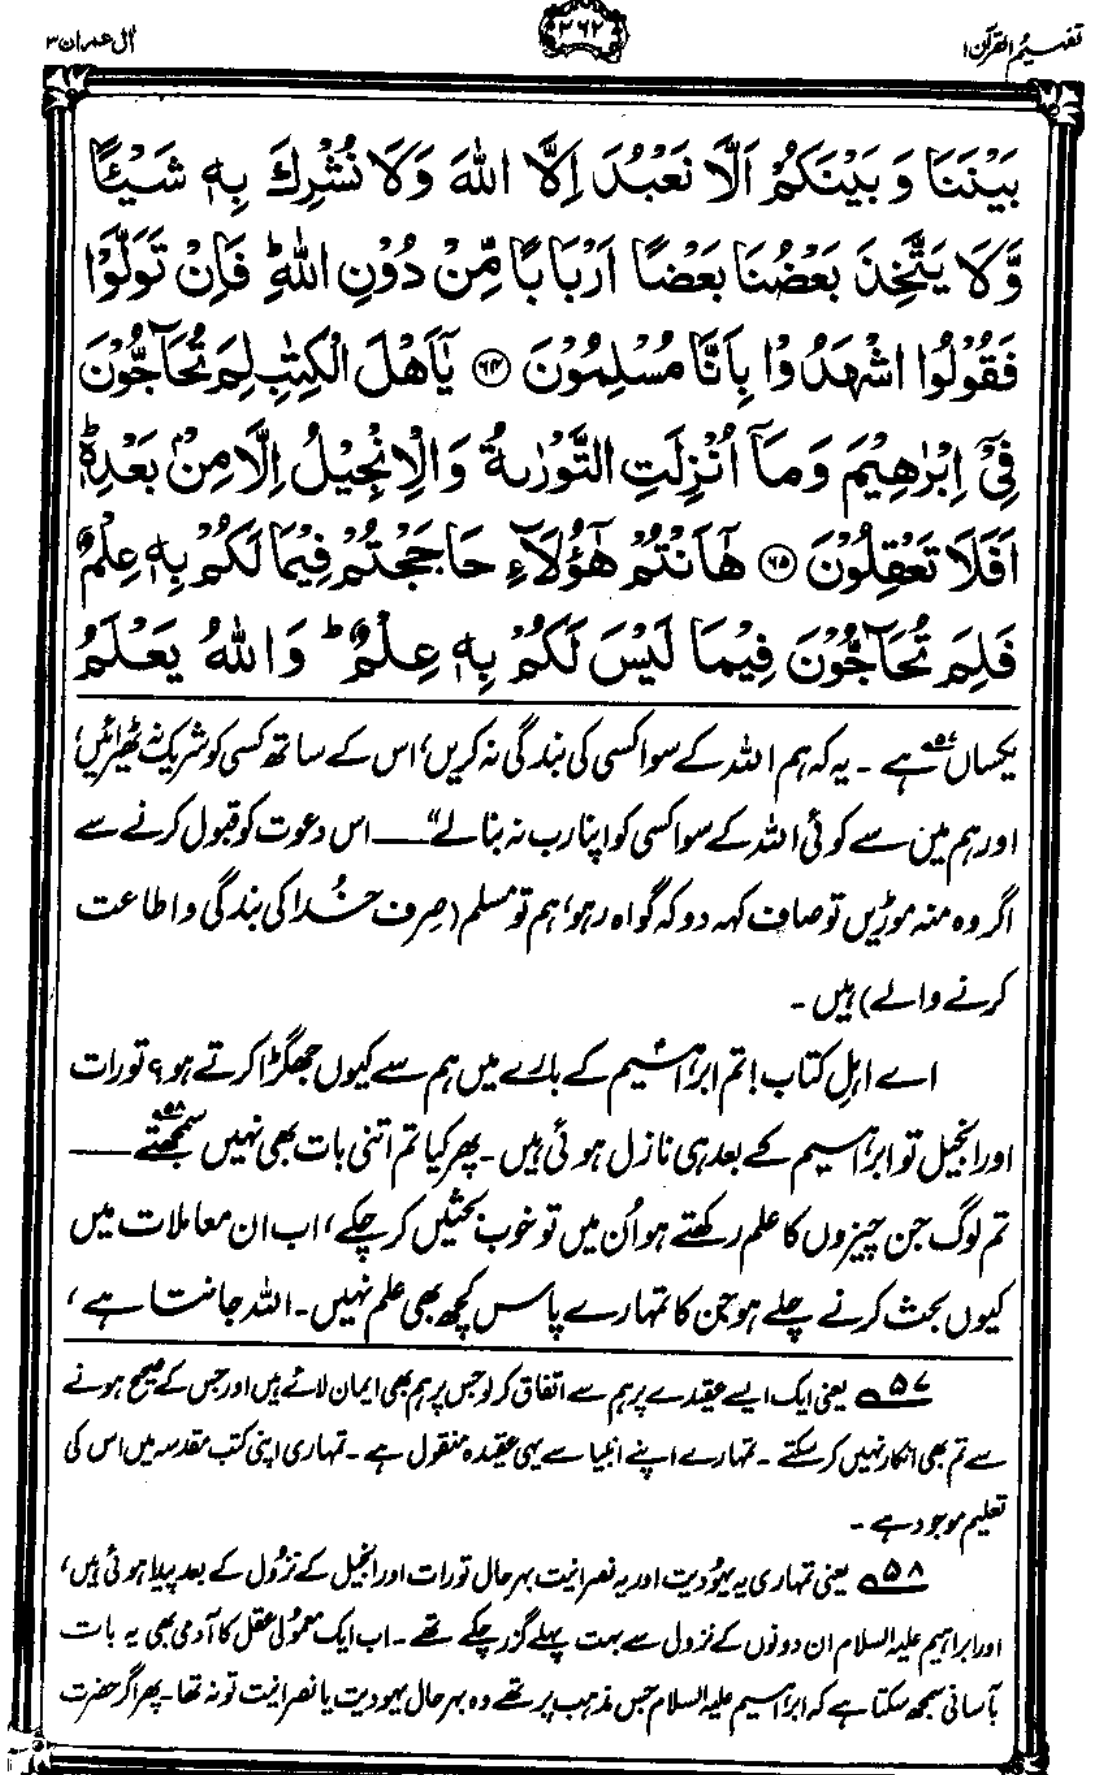 تفہیم القرآن ۱
۲۶۲
اٰل عمران ۳
بَیْنَنَا وَ بَیْنَكُمْ اَلَّا نَعْبُدَ اِلَّا اللّٰهَ وَلَا نُشْرِكَ بِهٖ شَیْـًٔا
وَّلَا یَتَّخِذَ بَعْضُنَا بَعْضًا اَرْبَابًا مِّنْ دُوْنِ اللّٰهِ ؕ فَاِنْ تَوَلَّوْا
فَقُوْلُوا اشْهَدُوْا بِاَنَّا مُسْلِمُوْنَ ﴿۶۴﴾ یٰۤاَهْلَ الْكِتٰبِ لِمَ تُحَآجُّوْنَ
فِیْۤ اِبْرٰهِیْمَ وَمَاۤ اُنْزِلَتِ التَّوْرٰىةُ وَالْاِنْجِیْلُ اِلَّا مِنْۢ بَعْدِهٖ ؕ
اَفَلَا تَعْقِلُوْنَ ﴿۶۵﴾ هٰۤاَنْتُمْ هٰۤؤُلَآءِ حَاجَجْتُمْ فِیْمَا لَكُمْ بِهٖ عِلْمٌ
فَلِمَ تُحَآجُّوْنَ فِیْمَا لَیْسَ لَكُمْ بِهٖ عِلْمٌ ؕ وَاللّٰهُ یَعْلَمُ
یکساں ۵۷ ہے ۔ یہ کہ ہم اللہ کے سوا کسی کی بندگی نہ کریں، اس کے ساتھ کسی کو شریک نہ ٹھیرائیں،
اور ہم میں سے کوئی اللہ کے سوا کسی کو اپنا رب نہ بنا لے“ ــــ اس دعوت کو قبول کرنے سے
اگر وہ منہ موڑیں تو صاف کہہ دو کہ گواہ رہو، ہم تو مسلم (صِرف خُدا کی بندگی و اطاعت
کرنے والے) ہیں ۔
اے اہلِ کتاب! تم ابراہیمؑ کے بارے میں ہم سے کیوں جھگڑا کرتے ہو؟ تورات
اور انجیل تو ابراہیم کے بعد ہی نازل ہوئی ہیں ۔ پھر کیا تم اتنی بات بھی نہیں سمجھتے ۵۸ ــــ
تم لوگ جن چیزوں کا علم رکھتے ہو اُن میں تو خوب بحثیں کر چکے، اب ان معاملات میں
کیوں بحث کرنے چلے ہو جن کا تمہارے پاس کچھ بھی علم نہیں ۔ اللہ جانتا ہے،
۵۷ یعنی ایک ایسے عقیدے پر ہم سے اتفاق کر لو جس پر ہم بھی ایمان لائے ہیں اور جس کے صحیح ہونے
سے تم بھی انکار نہیں کر سکتے ۔ تمہارے اپنے انبیا سے یہی عقیدہ منقول ہے ۔ تمہاری اپنی کتب مقدسہ میں اس کی
تعلیم موجود ہے ۔
۵۸ یعنی تمہاری یہ یہودیت اور یہ نصرانیت بہرحال تورات اور انجیل کے نزول کے بعد پیدا ہوئی ہیں،
اور ابراہیم علیہ السلام ان دونوں کے نزول سے بہت پہلے گزر چکے تھے ۔ اب ایک معمولی عقل کا آدمی بھی یہ بات
بآسانی سمجھ سکتا ہے کہ ابراہیم علیہ السلام جس مذہب پر تھے وہ بہرحال یہودیت یا نصرانیت تو نہ تھا ۔ پھر اگر حضرت